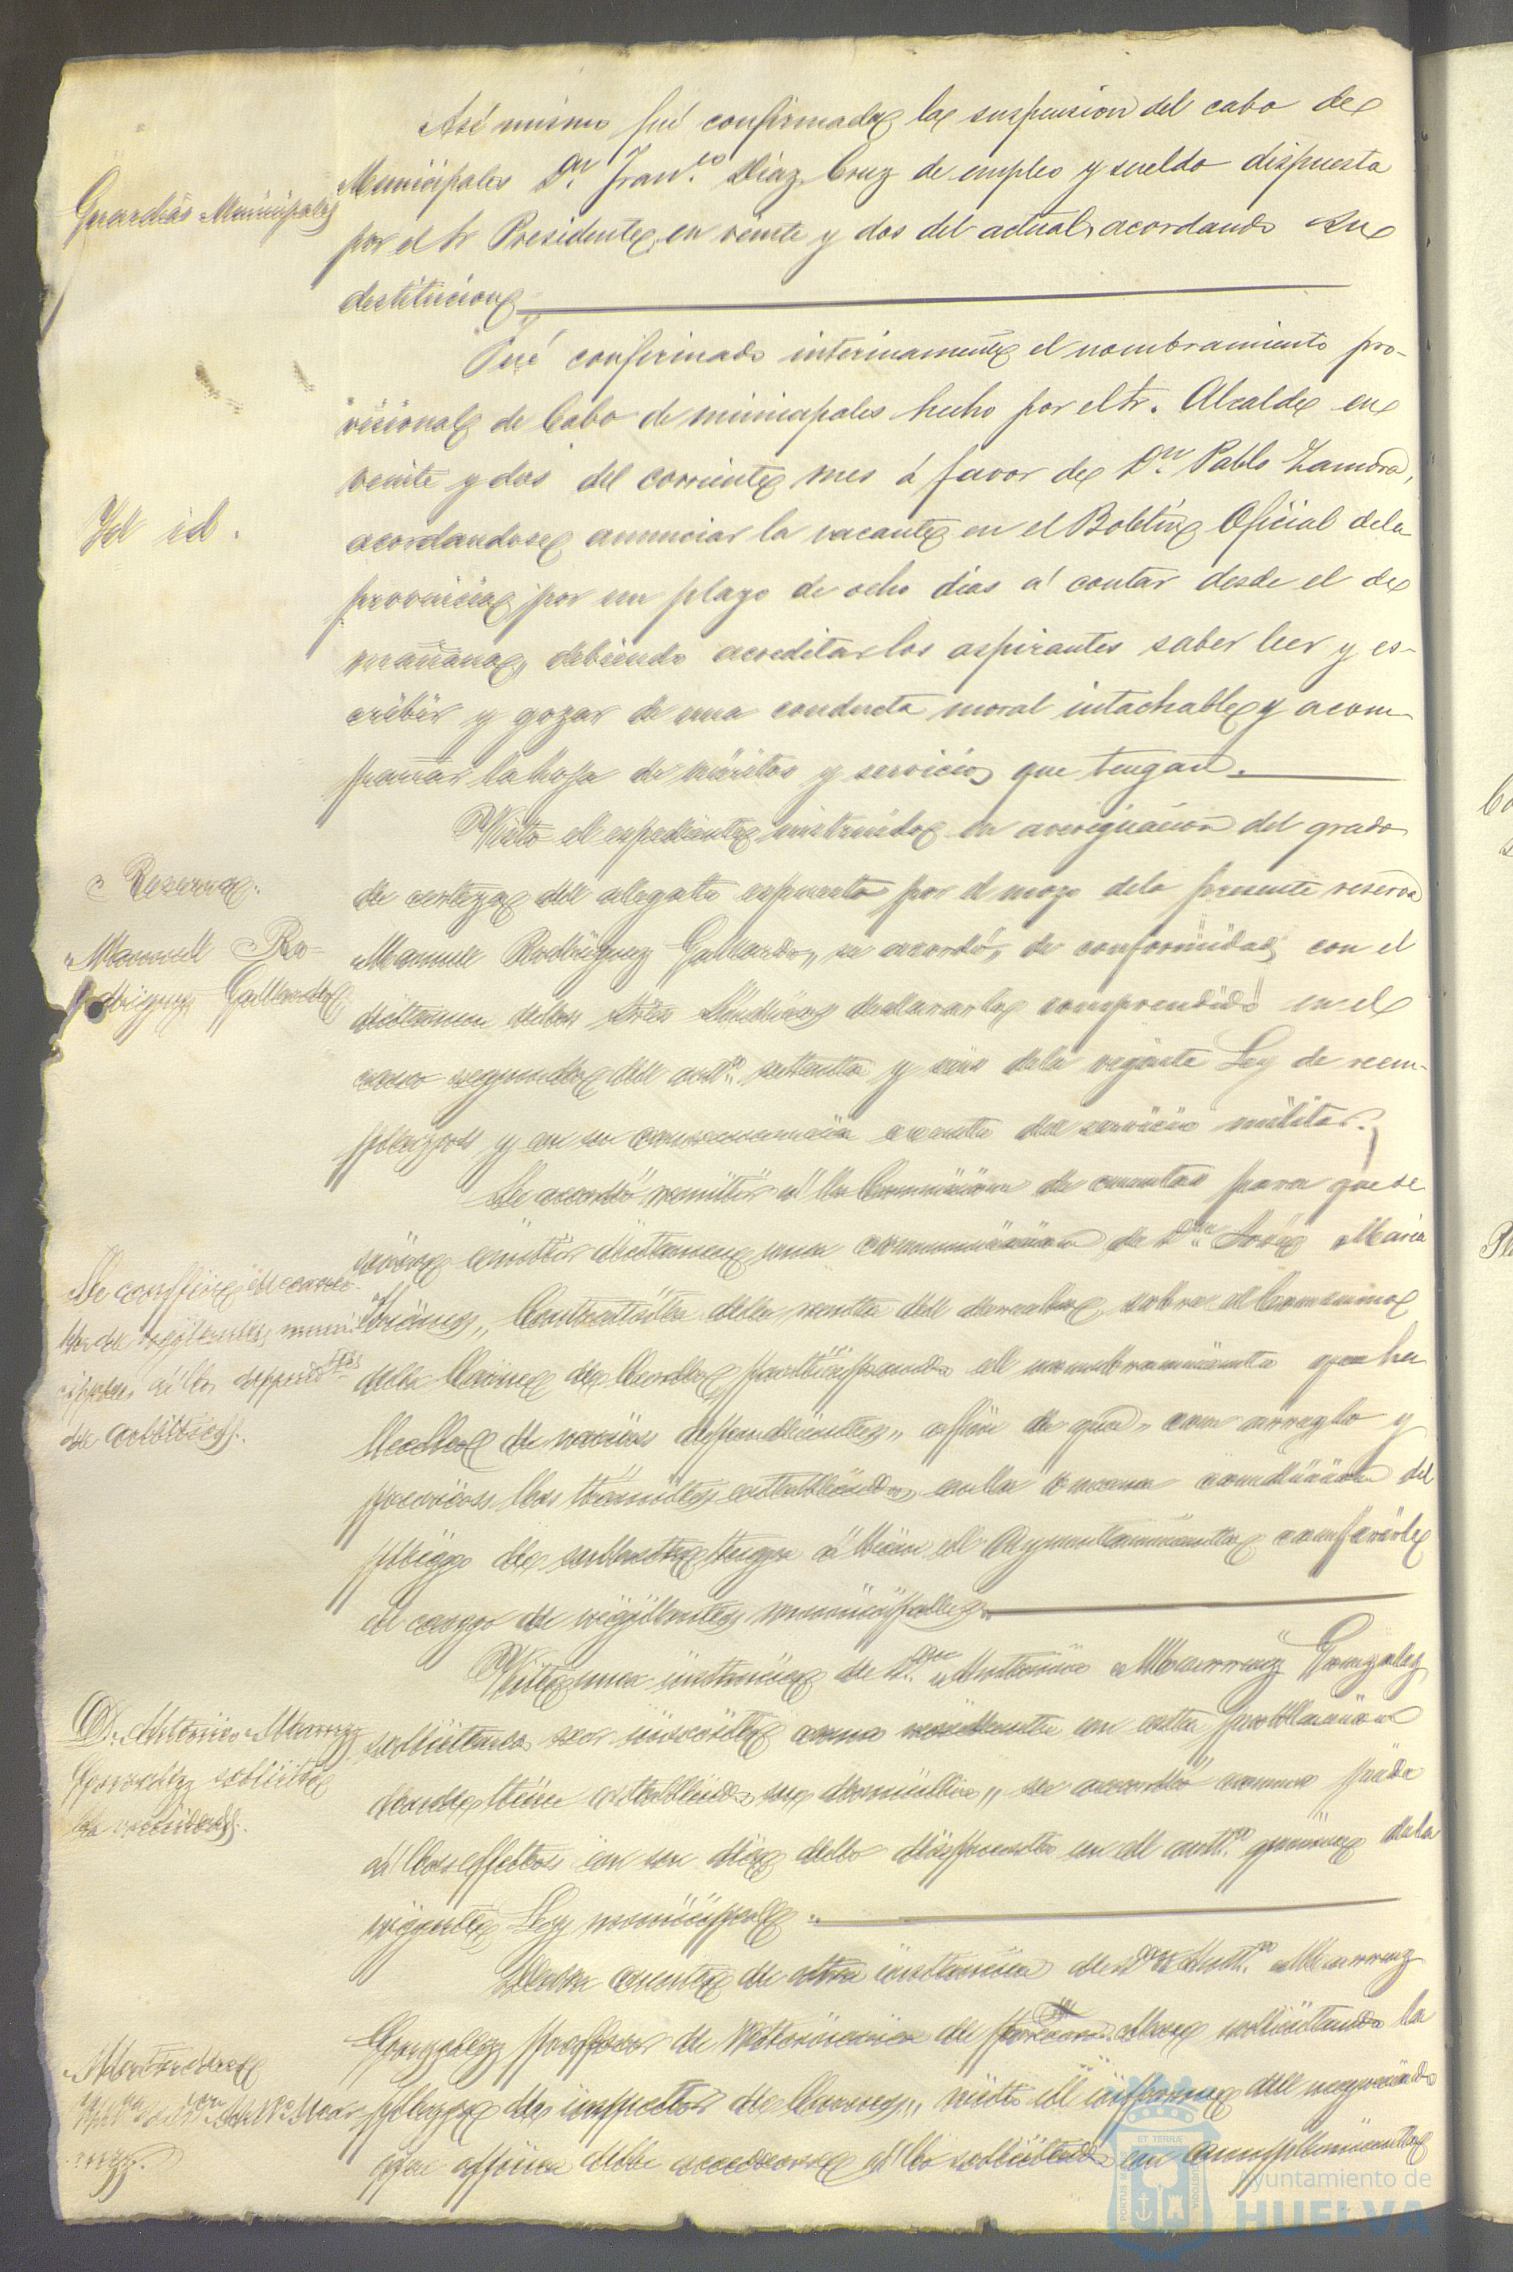 Asi mismo fué confirmada la suspension del cabo de
Guardias Municipales
Municipales Dn. Franco. Diaz Cruz de empleo y sueldo dispuesta
por el Sr Presidente en veinte y dos del actual, acordando su
destitucion
Fué confirmado interinamente el nombramiento pro-
visional de Cabo de municipales hecho por el Sr. Alcalde en
veinte y dos del corriente mes á favor de Dn. Pablo Zamora,
Id id.
acordandose anunciar la vacante en el Boletin Oficial de la
provincia por un plazo de ocho dias á contar desde el de
mañana, debiendo acreditar los aspirantes saber leer y es-
cribir y gozar de una conducta moral intachable y acom-
pañar la hoja de méritos y servicios que tengan.
Visto el espediente instruido en averiguacion del grado
Reserva.
de certeza del alegato espuesto por el mozo de la presente reserva
Manuel Ro-
Manuel Rodriguez Gallardo, se acordó, de conformidad con el
driguez Gallardo
dictamen de los tres Sindicos declararlo comprendido en el
caso segundo del artº. setenta y seis de la vigente Ley de reem-
plazos y en su consecuencia exento del servicio militar.
Se acordó remitir á la Comision de cuentas para que se
sirva emitir dictamen una comunicacion de Dn. José Maria
Se confiere el carac-
ter de vigilantes muni-
cipales á los depend.tes
de arbitrios.
Contratista de la renta del derecho sobre el Consumo
de la Carne de Cerdo, participando el nombramiento que ha
hecho de varios dependientes, á fin de que, con arreglo y
previos los trámites establecidos, en la tercera condicion del
pliego de subasta tenga á bien el Ayuntamiento conferirle
el cargo de vigilantes municipales.
Vista una instancia de Dn. Antonio Marruz Gonzalez
D. Antonio Marruz
Gonzalez solicita
la vecindad.
solicitando ser inscrito como residente en esta poblacion
donde tiene establecido su domicilio, se acordó como pide
á los efectos en su dia de lo dispuesto en el artº. quince de la
vigente Ley municipal.
Dada cuenta de otra instancia de Dn. Antº. Marruz
Gonzalez profesor de Veterinaria de primera clase solicitando la
Matadero
plaza de inspector de Carnes, visto el informe del negociado
que opina debe accederse á lo solicitado en cumplimiento
ET TERRÆ
Ayuntamiento de
HUELVA